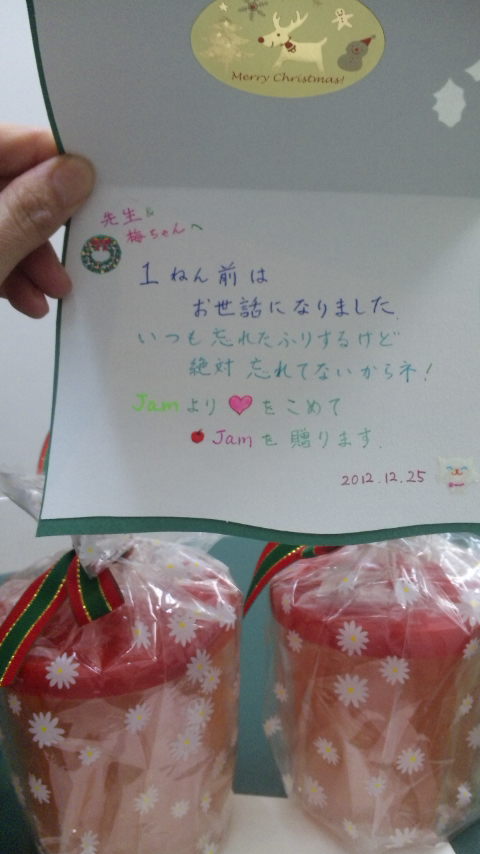 Merry Christmas!
先生&
梅ちゃんへ
1ねん前は
お世話になりました.
いつも忘れたふりするけど
絶対忘れてないからネ!
Jamより♥をこめて
Jamを贈ります.
2012.12.25